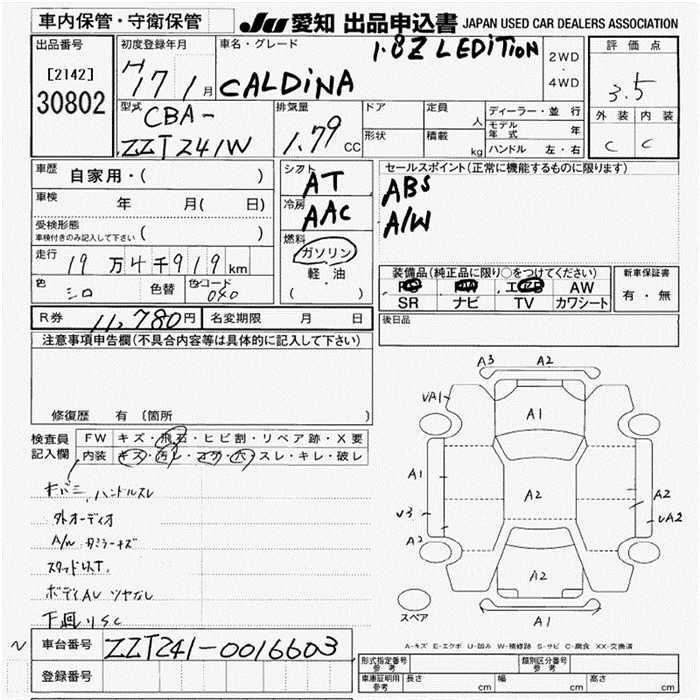 車内保管・守衛保管
JU 愛知 出品申込書 JAPAN USED CAR DEALERS ASSOCIATION
出品番号
[2142]
30802
初度登録年月
H17 1月
車名・グレード
1.8Z L EDiTiON
CALDiNA
2WD
・
4WD
評価点
3.5
外装 内装
C C
型式
CBA-
ZZT241W
排気量
1.79 CC
ドア
定員
人
形状
積載
kg
ディーラー・並行
モデル年式 年
ハンドル 左・右
車歴
自家用・( )
車検
年 月( 日)
受検形態
車検付きのみ記入して下さい ( )
走行
19万4千919km
色 シロ 色替 色コード 040
シフト
AT
冷房
AAC
燃料
ガソリン
軽・油
( )
セールスポイント(正常に機能するものに限ります)
ABS
A/W
装備品(純正品に限り○をつけてください)
PS PW エアB AW
SR ナビ TV カワシート
新車保証書
有・無
R券 11,780円 名変期限 月 日
後日品
注意事項申告欄(不具合内容等は具体的に記入して下さい)
修復歴 有 (箇所
検査員
記入欄
FW キズ・飛石・ヒビ割・リペア跡・X要
内装 キズ・汚レ・コゲ・穴・スレ・キレ・破レ
ハンドルスレ
外オーディオ
ボディAU ツヤなし
下廻りSC
A3 A2
UA1
A1
A1
A2
A2
V3
UA2
A2
A2
A1
スペア
A-キズ E-エクボ U-凹み W-補修跡 S-サビ C-腐食 XX-交換済
車台番号 ZZT241-0016603
登録番号
形式指定番号
参考
類別区分番号
参考
車庫証明用
参考
長さ cm 幅 cm 高さ cm